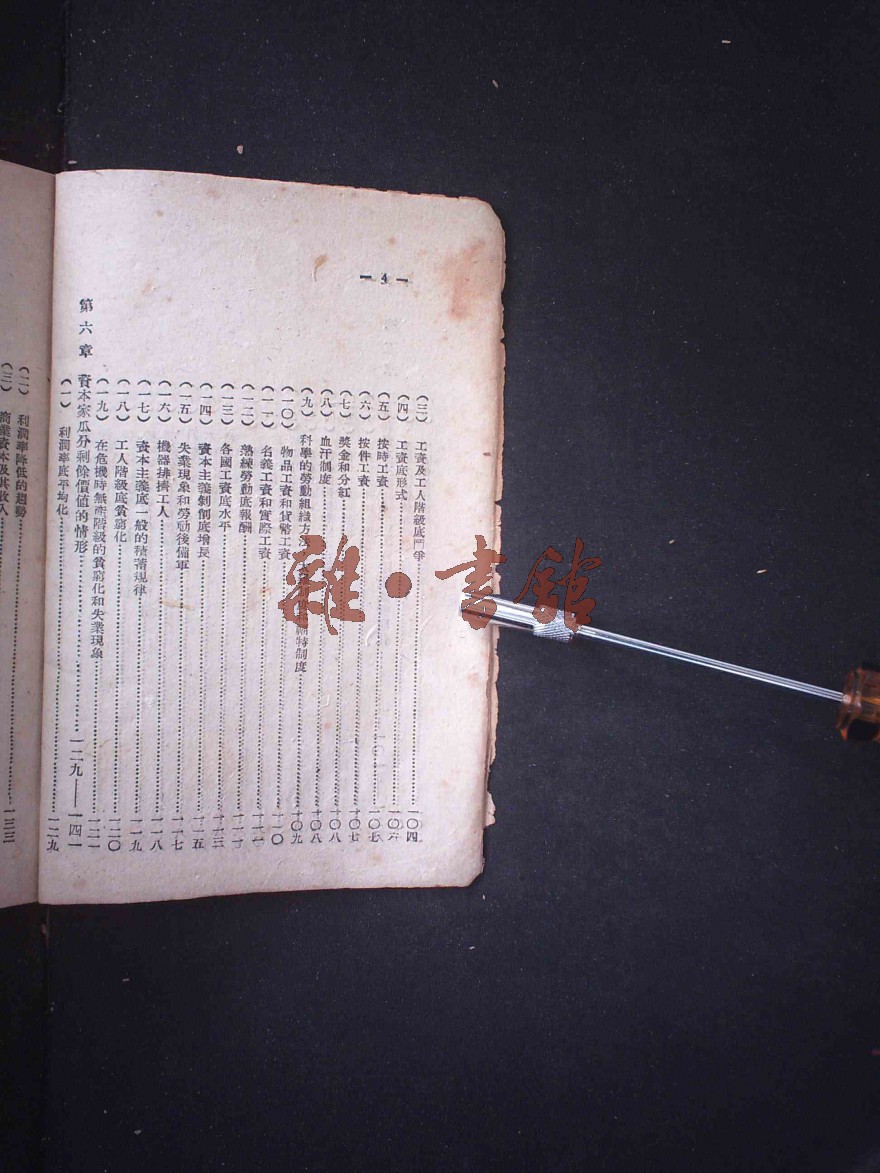 — 4 —
(三) 工資及工人階級底鬥爭……一〇四
(四) 工資底形式……一〇六
(五) 按時工資……一〇七
(六) 按件工資……一〇七
(七) 獎金和分紅……一〇八
(八) 血汗制度……一〇八
(九) 科學的勞動組織方法 特制度……一〇九
(一〇) 物品工資和貨幣工資……一一〇
(一一) 名義工資和實際工資……一一一
(一二) 熟練勞動底報酬……一一一
(一三) 各國工資底水平……一一三
(一四) 資本主義剝削底增長……一一五
(一五) 失業現象和勞動後備軍……一一七
(一六) 機器排擠工人……一一八
(一七) 資本主義底一般的積蓄規律……一一九
(一八) 工人階級底貧窮化……一二〇
(一九) 在危機時無產階級的貧窮化和失業現象……一二一
第六章 資本家瓜分剩餘價值的情形……一二九——一四一
(一) 利潤率底平均化……一二九
(二) 利潤率降低的趨勢
(三) 商業資本及其收入……一三三
雜·書館